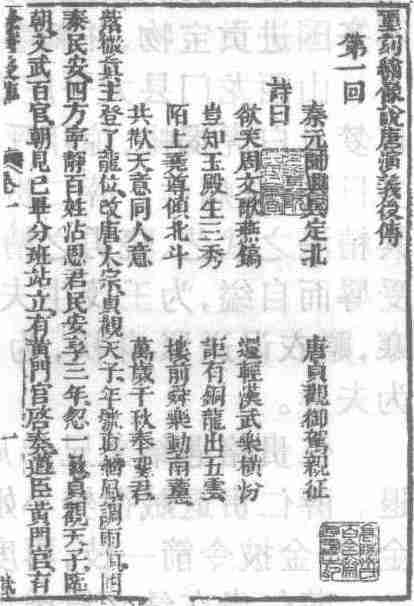 刻繡像說唐演義後傳
第一回
秦元帥興兵定北　唐貞觀御駕親征
詩曰
欲笑周文歌燕鎬　還輕漢武樂橫汾
豈知玉殿生三秀　詎有銅龍出五雲
陌上堯尊傾北斗　樓前舜樂動南薰
共歡天意同人意　萬歲千秋奉聖君
真主登了龍位改唐太宗貞觀天子年號風調雨順國
泰民安四方寧靜百姓沾恩君民安享三年忽一日貞觀天子臨
朝文武百官朝見已畢分班站立有黃門官啓奏邊臣黃門官有
卷一
一